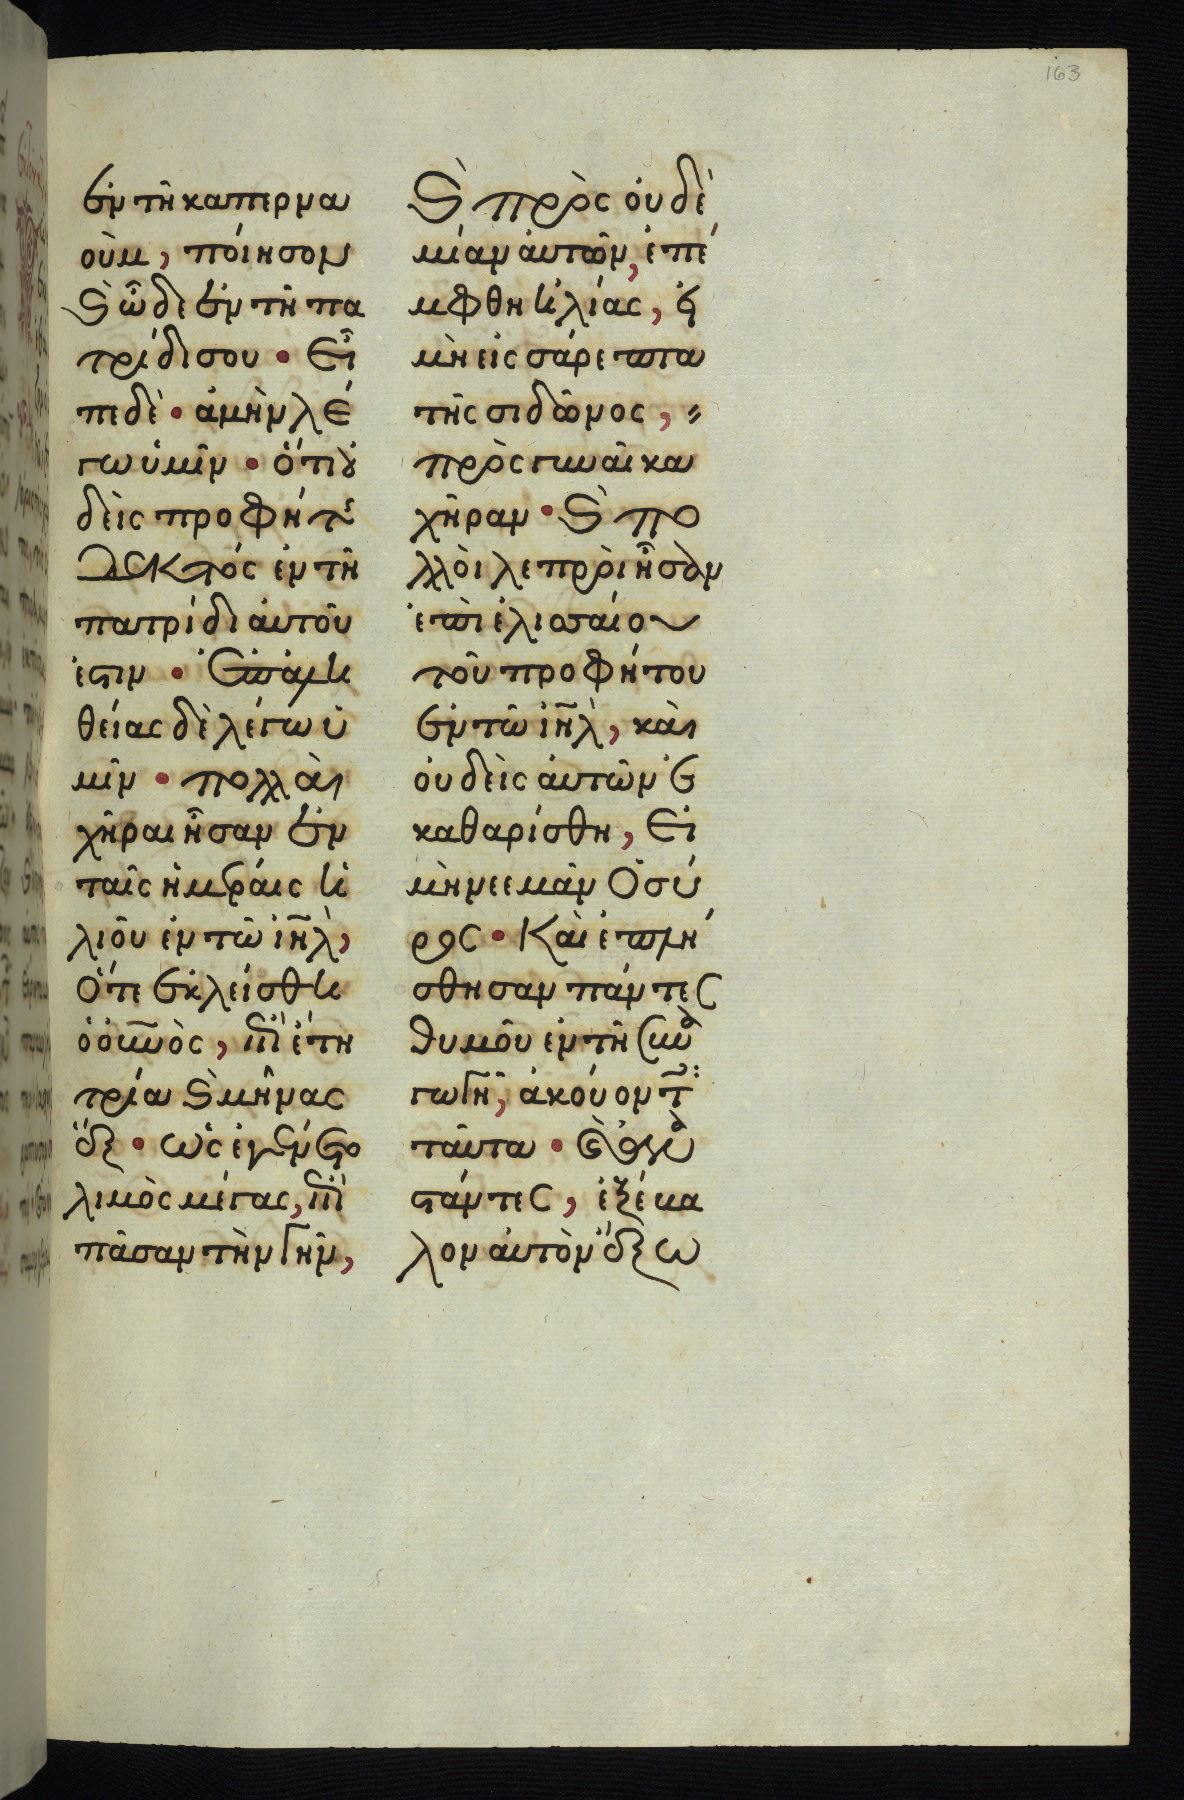 163
ἐν τῆ καπερνα
οὺμ, ποίησον
Ϗ ὧδε ἐν τῆ πα
τρίδι σου · Εἶ
πε δὲ · ἀμὴν λέ
γω ὑμῖν · ὅτι οὐ
δεὶς προφήτης
δεκτός ἐν τῆ
πατρίδι ἀυτοῦ
ἐστιν · Ἐπ ἀλη
θείας δὲ λέγω ὑ
μῖν · πολλὰι
χῆραι ἦσαν ἐν
ταῖς ἡμέραις ἡ
λιοῦ ἐν τῶ ἰηλ̀,
Ὅτε ἐκλείσθη
ὁ οὐνὸς, ἐπὶ ἔτη
τρία ϗ μῆνας
ἕξ · ὡς ἐγένετο
λιμὸς μέγας, ἐπὶ
πᾶσαν τὴν γῆν,
Ϗ πρὸς ὀυδε
μίαν ἀυτῶν, ἐπέ
μφθη ἡλίας, εἰ
μὴ εἰς σάρεπτα
τῆς σιδῶνος, //
πρὸς γυναῖκα
χῆραν · Ϗ πο
λλὸι λεπρὸι ἦσαν
ἐπὶ ἐλισσαίου
τοῦ προφήτου
ἐν τῶ ἰηλ̀, κὰι
ὀυδεὶς ἀυτῶν ἐ
καθαρίσθη, Εἰ
μὴ νεεμὰν Ὁ σύ
ρος · Κὰι ἐπλή
σθησαν πάντες
θυμοῦ ἐν τῆ συνα
γωγῆ, ἀκούοντες
ταῦτα · ϗ ἀνα
στάντες, ἐξέβα
λον ἀυτὸν ἔξω